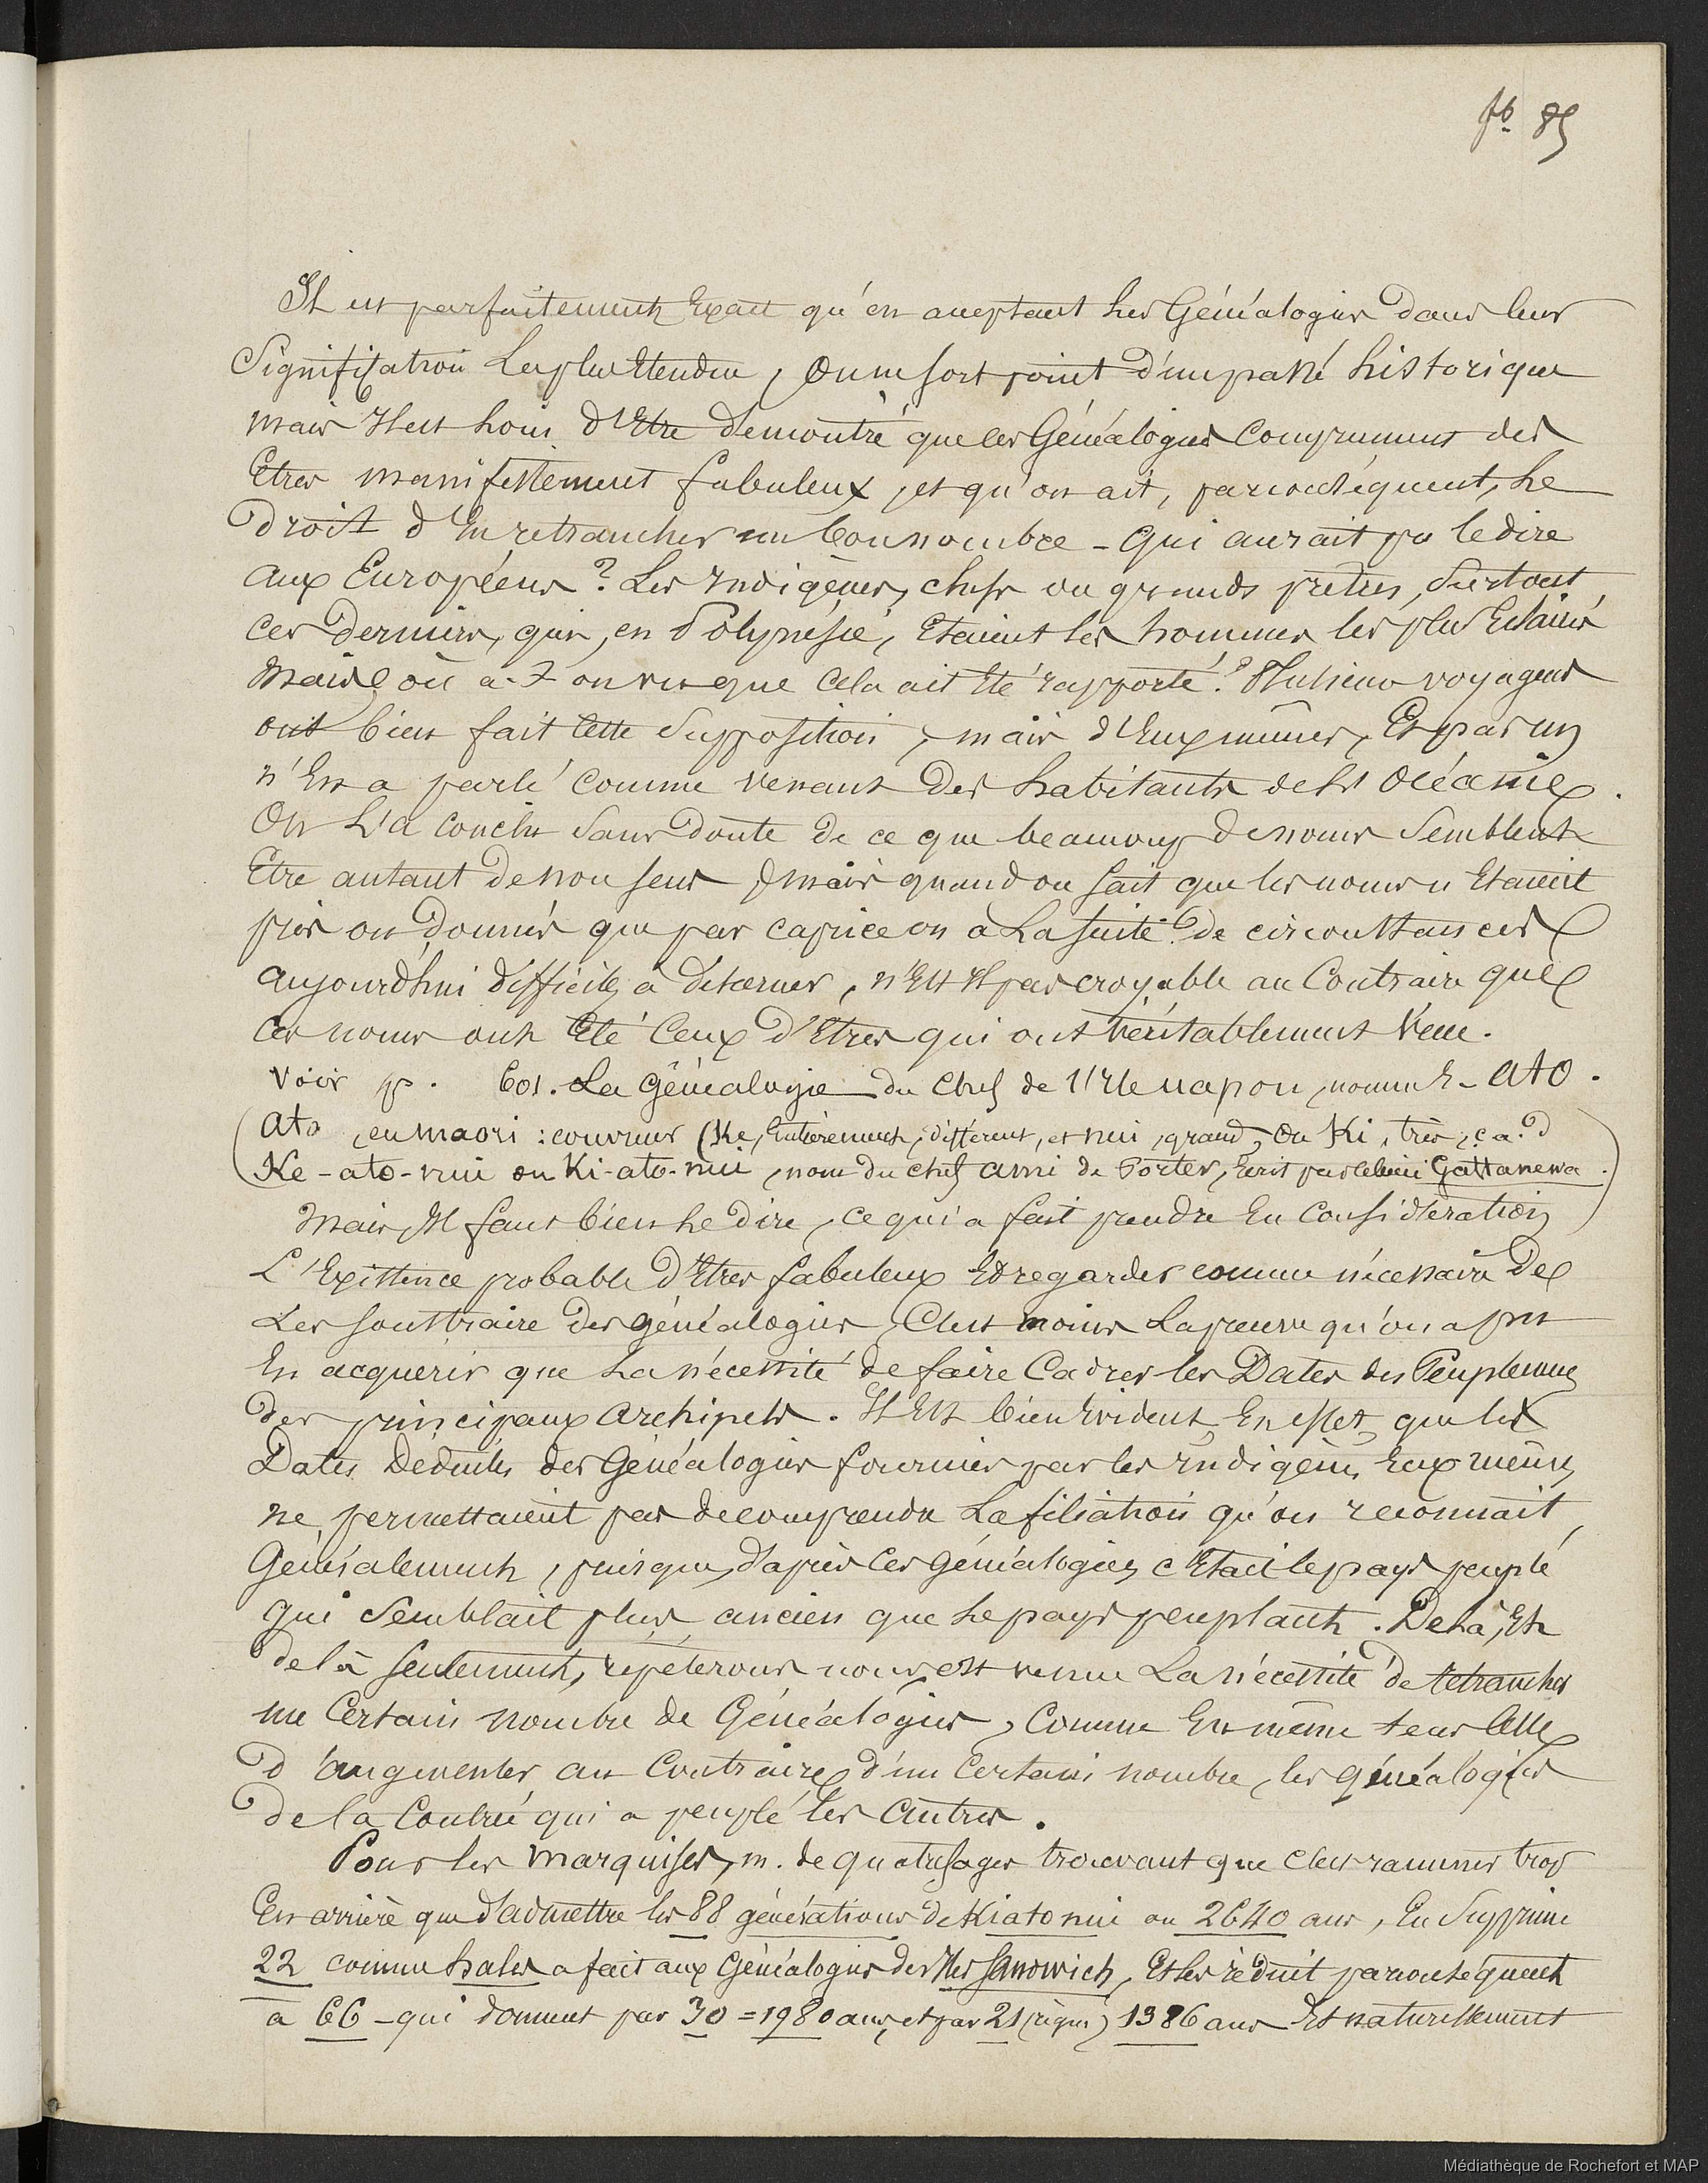 fo. 85
Il est parfaitement Exact qu'en acceptant Les Généalogies dans leur
Signification La plus Etendue, on ne sort point d'un passé historique
mais Il est loin d'Etre démontré que les Généalogies comprennent des
Etres manifestement fabuleux, et qu'on ait, par conséquent, Le
Droit d'En retrancher un bon nombre - Qui aurait pu le dire
aux Européens ? Les Indigènes, chefs ou grands prêtres, Surtout
ces Derniers, qui, en Polynésie, Etaient les hommes les plus Eclairés
Mais où a-t-on vu que Cela ait Eté rapporté ? Plusieurs voyageurs
ont bien fait cette Supposition, mais d'Eux mêmes, Et pas un
n'En a parlé comme venant Des habitants de L'Océanie.
On L'a conclu Sans Doute de ce que beaucoup de noms Semblent
Etre autant de non sens, mais quand on sait que les noms n'Etaient
pris ou Donnés que par caprice ou à La suite de circonstances
aujourd'hui difficiles à discerner, n'Est Il pas croyable au Contraire que
ces noms ont Eté Ceux d'Etres qui ont véritablement Vécu.
Voir p. 601. La Généalogie du Chef de l'Ile uapou, nommé - Ato.
(Ato, en maori : couvrir (Ke, Entièrement, différent, et nui, grand, ou Ki, très, c.a.d
Ke-ato-nui ou Ki-ato-nui, nom du chef ami de Porter, Ecrit par celui ci Gattanewa.)
Mais, Il faut bien Le Dire, ce qui a fait prendre En Considération
L'Existence probable d'Etres fabuleux Et regarder comme nécessaire De
Les soustraire Des généalogies, C'est moins La preuve qu'on a pu
En acquérir que La nécessité de faire Cadrer les Dates des Peuplements
Des principaux Archipels. Il Est bien Evident, En effet, que les
Dates Déduites des Généalogies fournies par les Indigènes Eux mêmes
ne permettaient pas de comprendre La filiation qu'on reconnait
Généralement, puisque, d'après Les Généalogies, c'Etait le pays peuplé
qui Semblait plus ancien que Le pays peuplant. De Là, Et
de là seulement, répéterons nous, est venue La nécessité de retrancher
un Certain nombre de Généalogies, Comme En même tems Celle
D'augmenter au Contraire, d'un Certain nombre, les généalogies
De la Contrée qui a peuplé les Autres.
Pour les Marquises, m. de Quatrefages trouvant que c'est ramener trop
En arrière que d'admettre les 88 générations de Kiatonui ou 2640 ans, En Supprime
22 comme hales a fait aux Généalogies des Iles Sandwich, Et les réduit par conséquent
à 66 - qui donnent par 30 = 1980 ans, et par 21 (règne) 1386 ans Et naturellement
Médiathèque de Rochefort et MAP